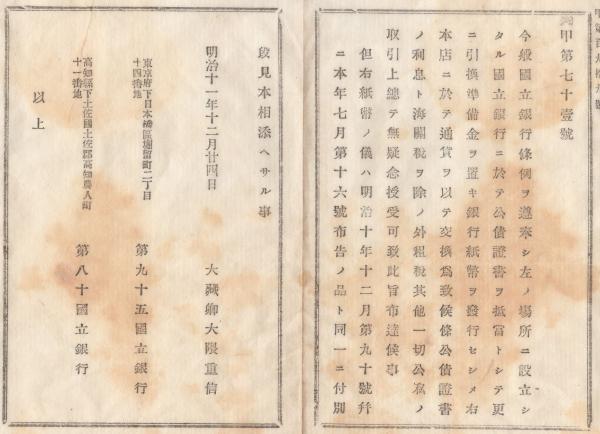 甲第七十壹號
今般國立銀行條例ヲ遵奉シ左ノ場所ニ設立シ
タル國立銀行ニ於テ公債證書ヲ抵當トシテ更
ニ引換準備金ヲ置キ銀行紙幣ヲ發行セシメ右
本店ニ於テ通貨ヲ以テ交換爲致候條公債證書
ノ利息ト海關稅ヲ除ノ外租稅其他一切公私ノ
取引上總テ無疑念授受可致此旨布達候事
但右紙幣ノ儀ハ明治十年十二月第九十號幷
ニ本年七月第十六號布告ノ品ト同一ニ付別
段見本相添ヘサル事
明治十一年十二月廿四日
大藏卿大隈重信
東京府下日本橋區堀留町二丁目
十四番地
第九十五國立銀行
高知縣下土佐國土佐郡高知農人町
十一番地
第八十國立銀行
以上